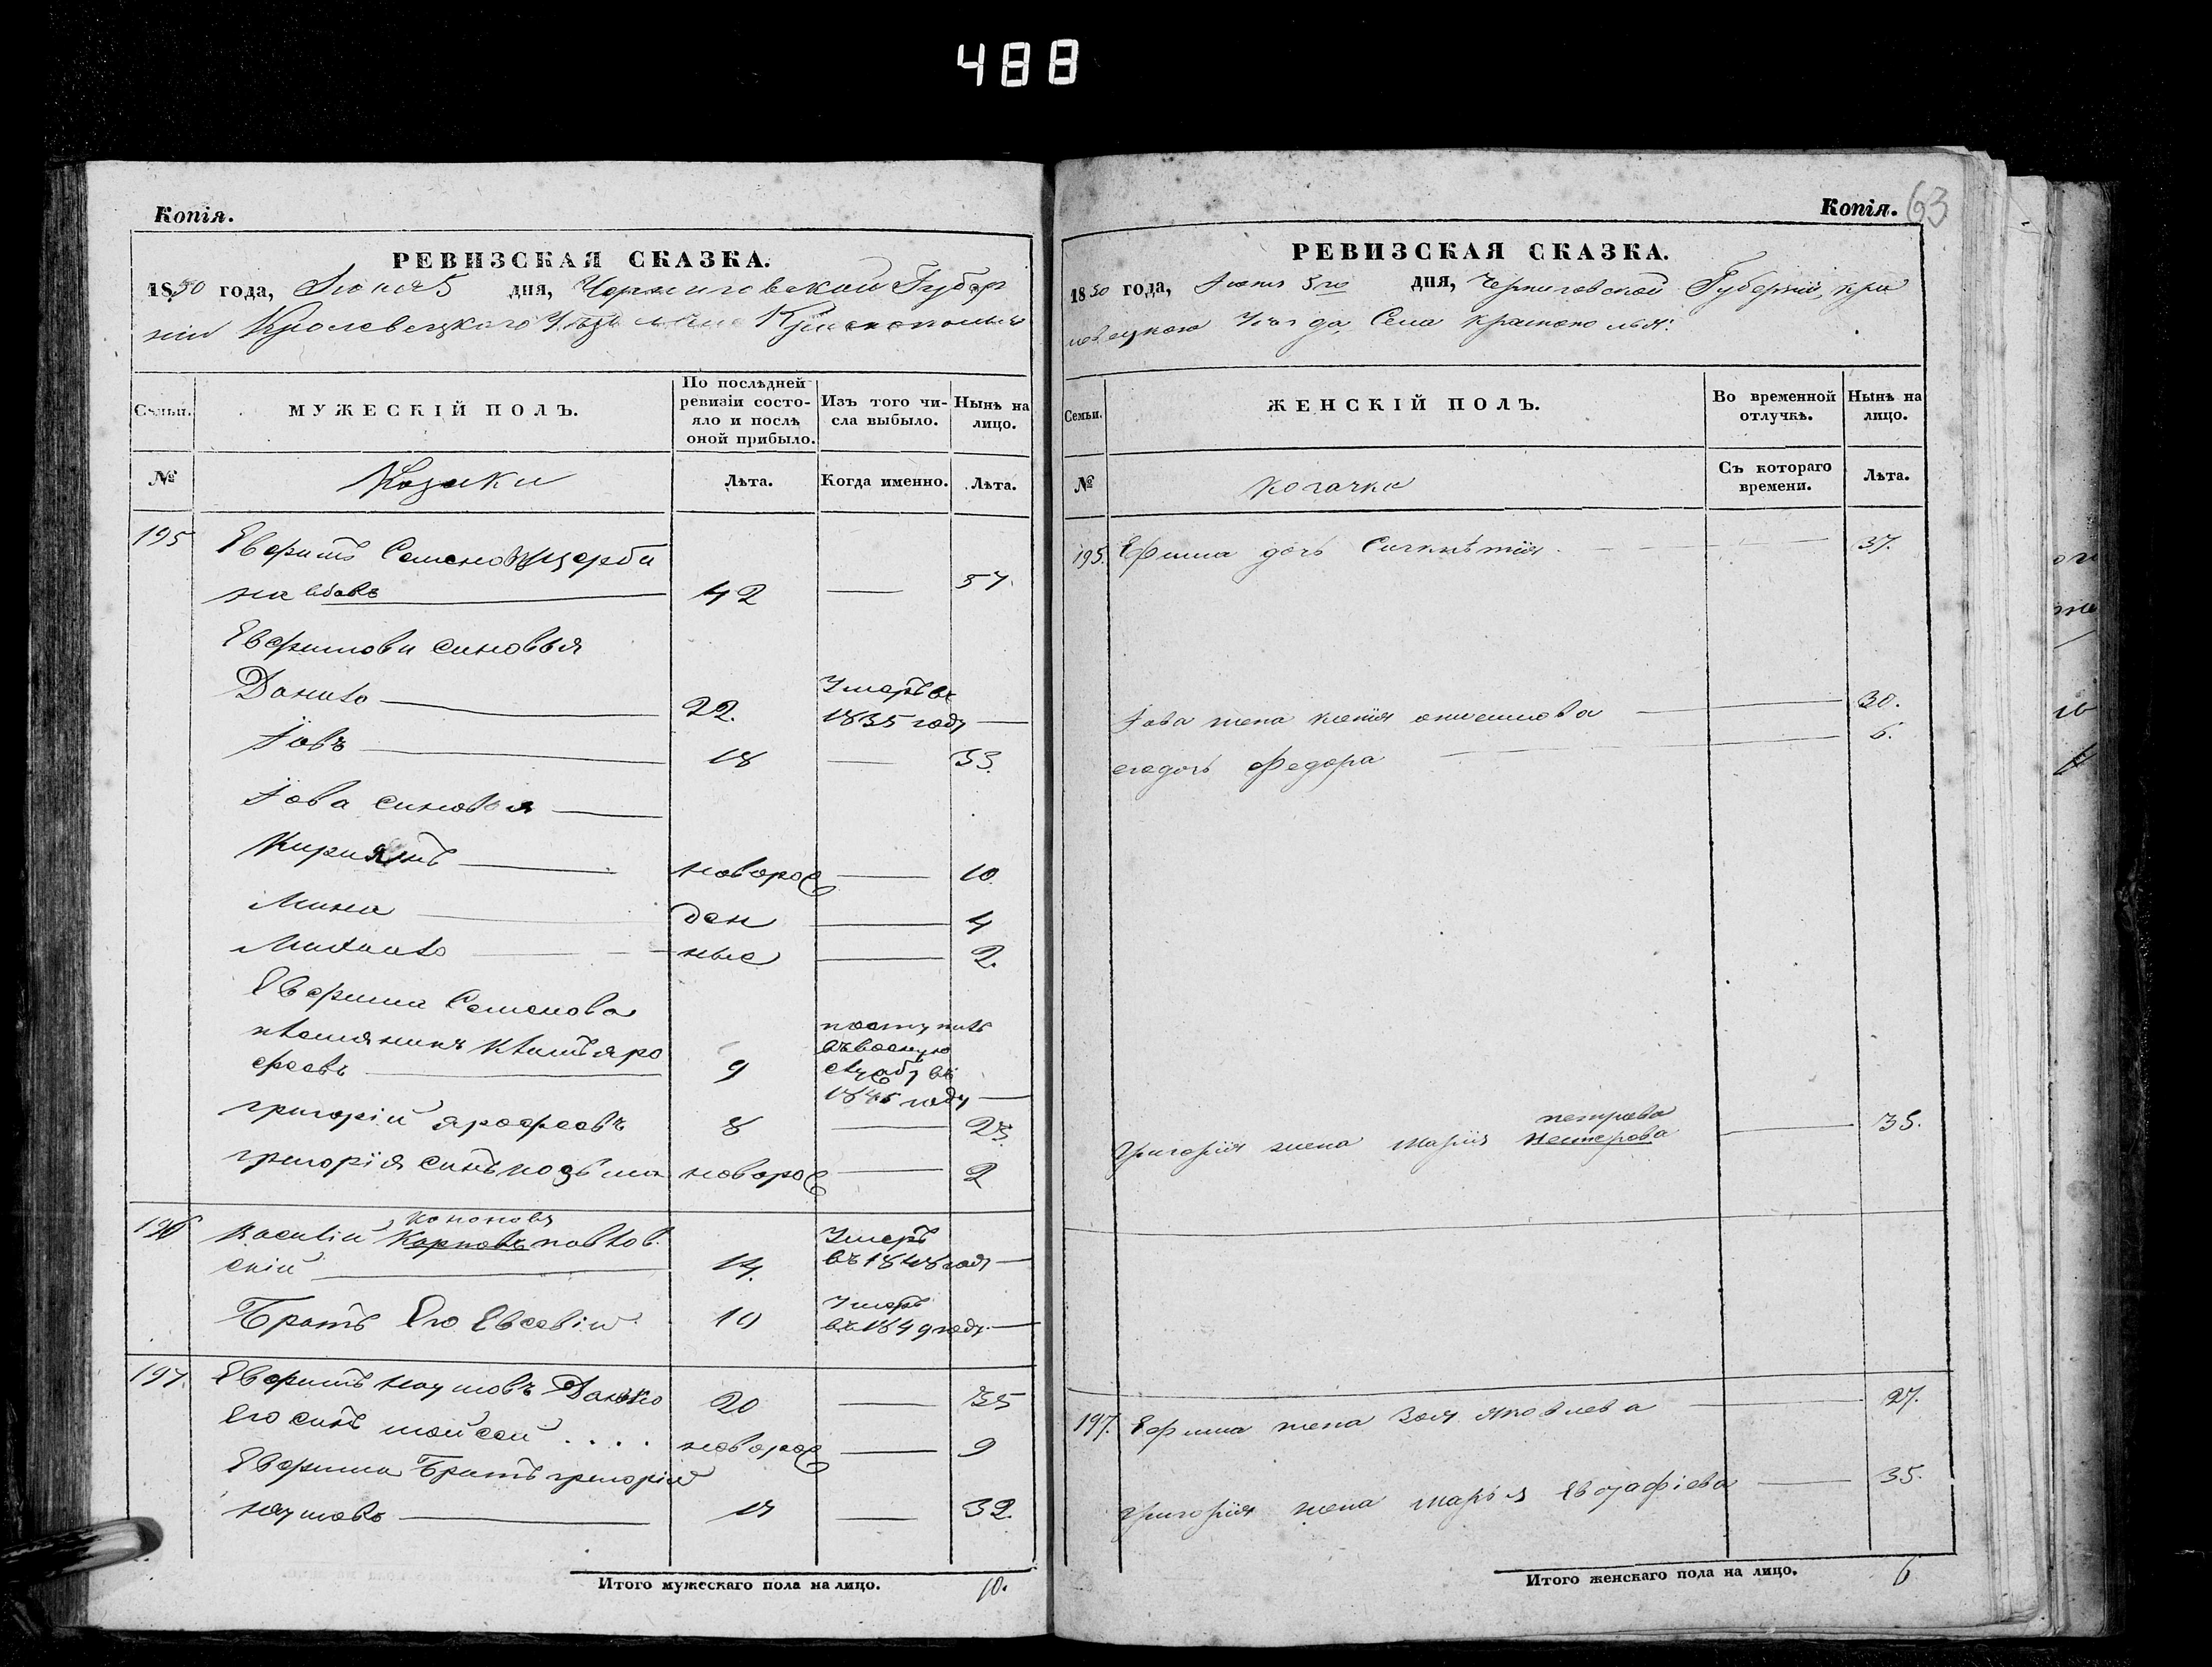 488
Копія.
РЕВИЗСКАЯ СКАЗКА.
1850 года, Іюня 5 дня, Черниговской Губер
ніи Кролевецкого Уезда Краснополья
Семьи.
МУЖЕСКІЙ ПОЛЪ.
По послѣдней
ревизіи состо-
яло и послѣ
оной прибыло.
Изъ того чи-
сла выбыло.
Нынѣ на
лицо.
№
Козаки
Лѣта.
Когда именно.
Лѣта.
195
Евфимъ Семеновъ Щерби
на вдовъ 42 57.
Евфимови синовья
Данило 22. Умеръ въ
1835 году
Іовъ 18 33.
Іова синовья
новорож 10
Мина ден 4
Михаило ные 2.
Евфима Семенова
племяникъ Климъ яро
феевъ 9
поступилъ
въ военую
службу въ
1845 году
григорій ярофеевъ 8 23.
григорія синъ козьма новорож 2
196
кононовъ
Василій Карповъ павлов.
скій 14.
Умеръ
въ 1848 году
Братъ Его Евсевій 10
Умеръ
въ 1849 году.
197.
Евфимъ наумовъ Данько 20 35
Его синъ мойсей . . . . новорож 9
Евфима Братъ григорій
наумовъ 17 32.
Итого мужескаго пола на лицо. 10.
Копія. 63
РЕВИЗСКАЯ СКАЗКА.
1850 года, Іюня 5го дня, Черниговской Губерніи, кро
левецкого Уезда, Села краснополья.
Семьи.
ЖЕНСКІЙ ПОЛЪ.
Во временной
отлучкѣ.
Нынѣ на
лицо.
№
козачки
Съ котораго
времени.
Лѣта.
195. Ефима дочь 37.
Іова жена 30.
его дочь Федора 6.
петрова
Григорія жена марія нестерова 35.
197. Ефима жена Зоя яковлева 27.
Григорія жена марья Евстафіева 35.
Итого женскаго пола на лицо. 6